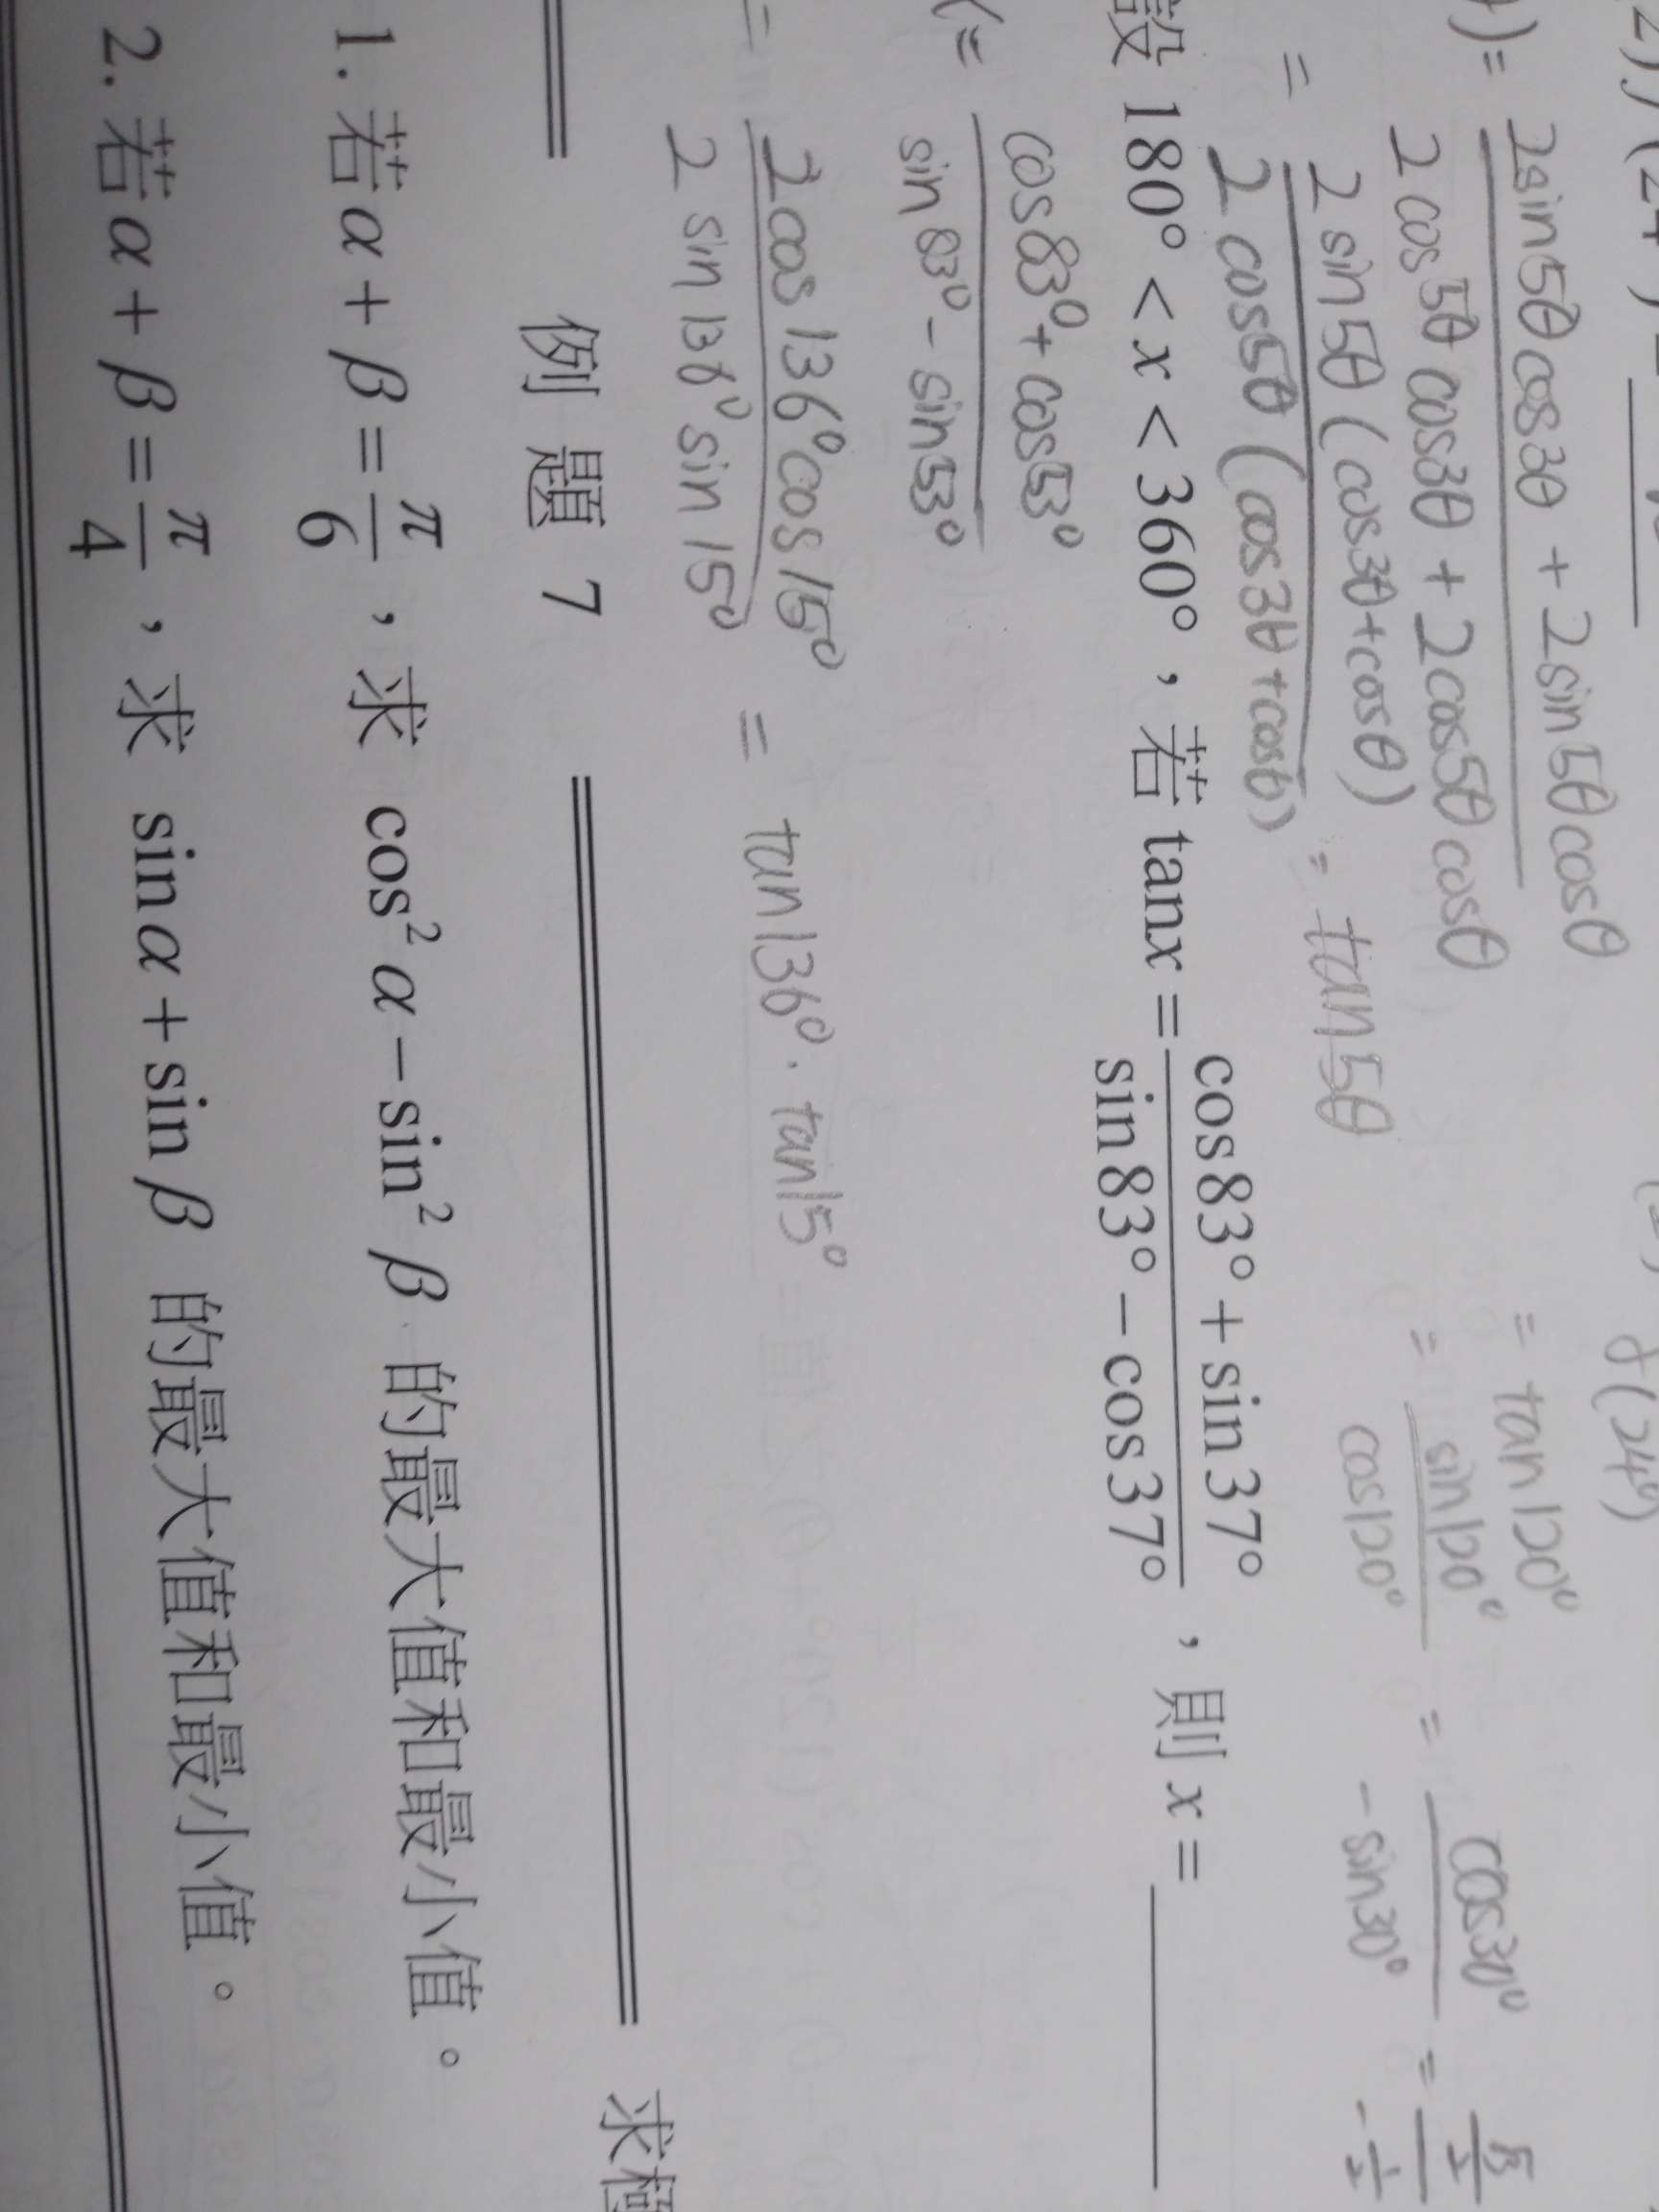 2) f(24°) =
f(24°)
) = 2sin5θcos3θ + 2sin5θcosθ
2cos5θcos3θ + 2cos5θcosθ
= tan120°
= 2sin5θ(cos3θ+cosθ)
2cos5θ(cos3θ+cosθ)
= tan5θ
= sin120°
cos120°
= cos30°
-sin30°
= √3/2
-1/2
設 180° < x < 360°,若 tanx = cos83° + sin37° / sin83° − cos37° ,則 x =
= cos83° + cos53°
sin83° - sin53°
= 2cos136°cos15°
2sin136°sin15°
= tan136°·tan15°
例題 7
求極
1. 若 α + β = π/6 ,求 cos²α − sin²β 的最大值和最小值。
2. 若 α + β = π/4 ,求 sinα + sinβ 的最大值和最小值。